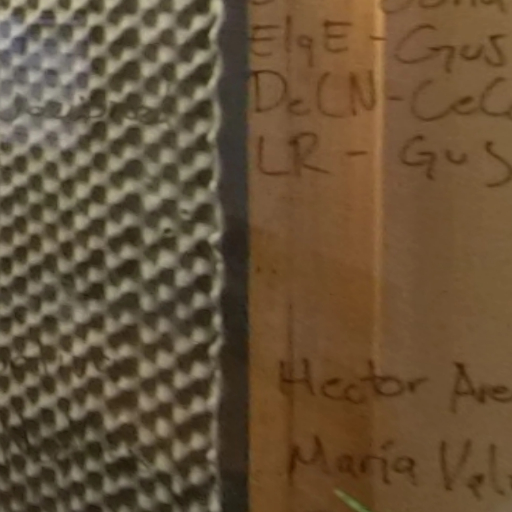 ElqE - Gus
DeCN - CeC
LR - Gus
Hector Are
María Vel